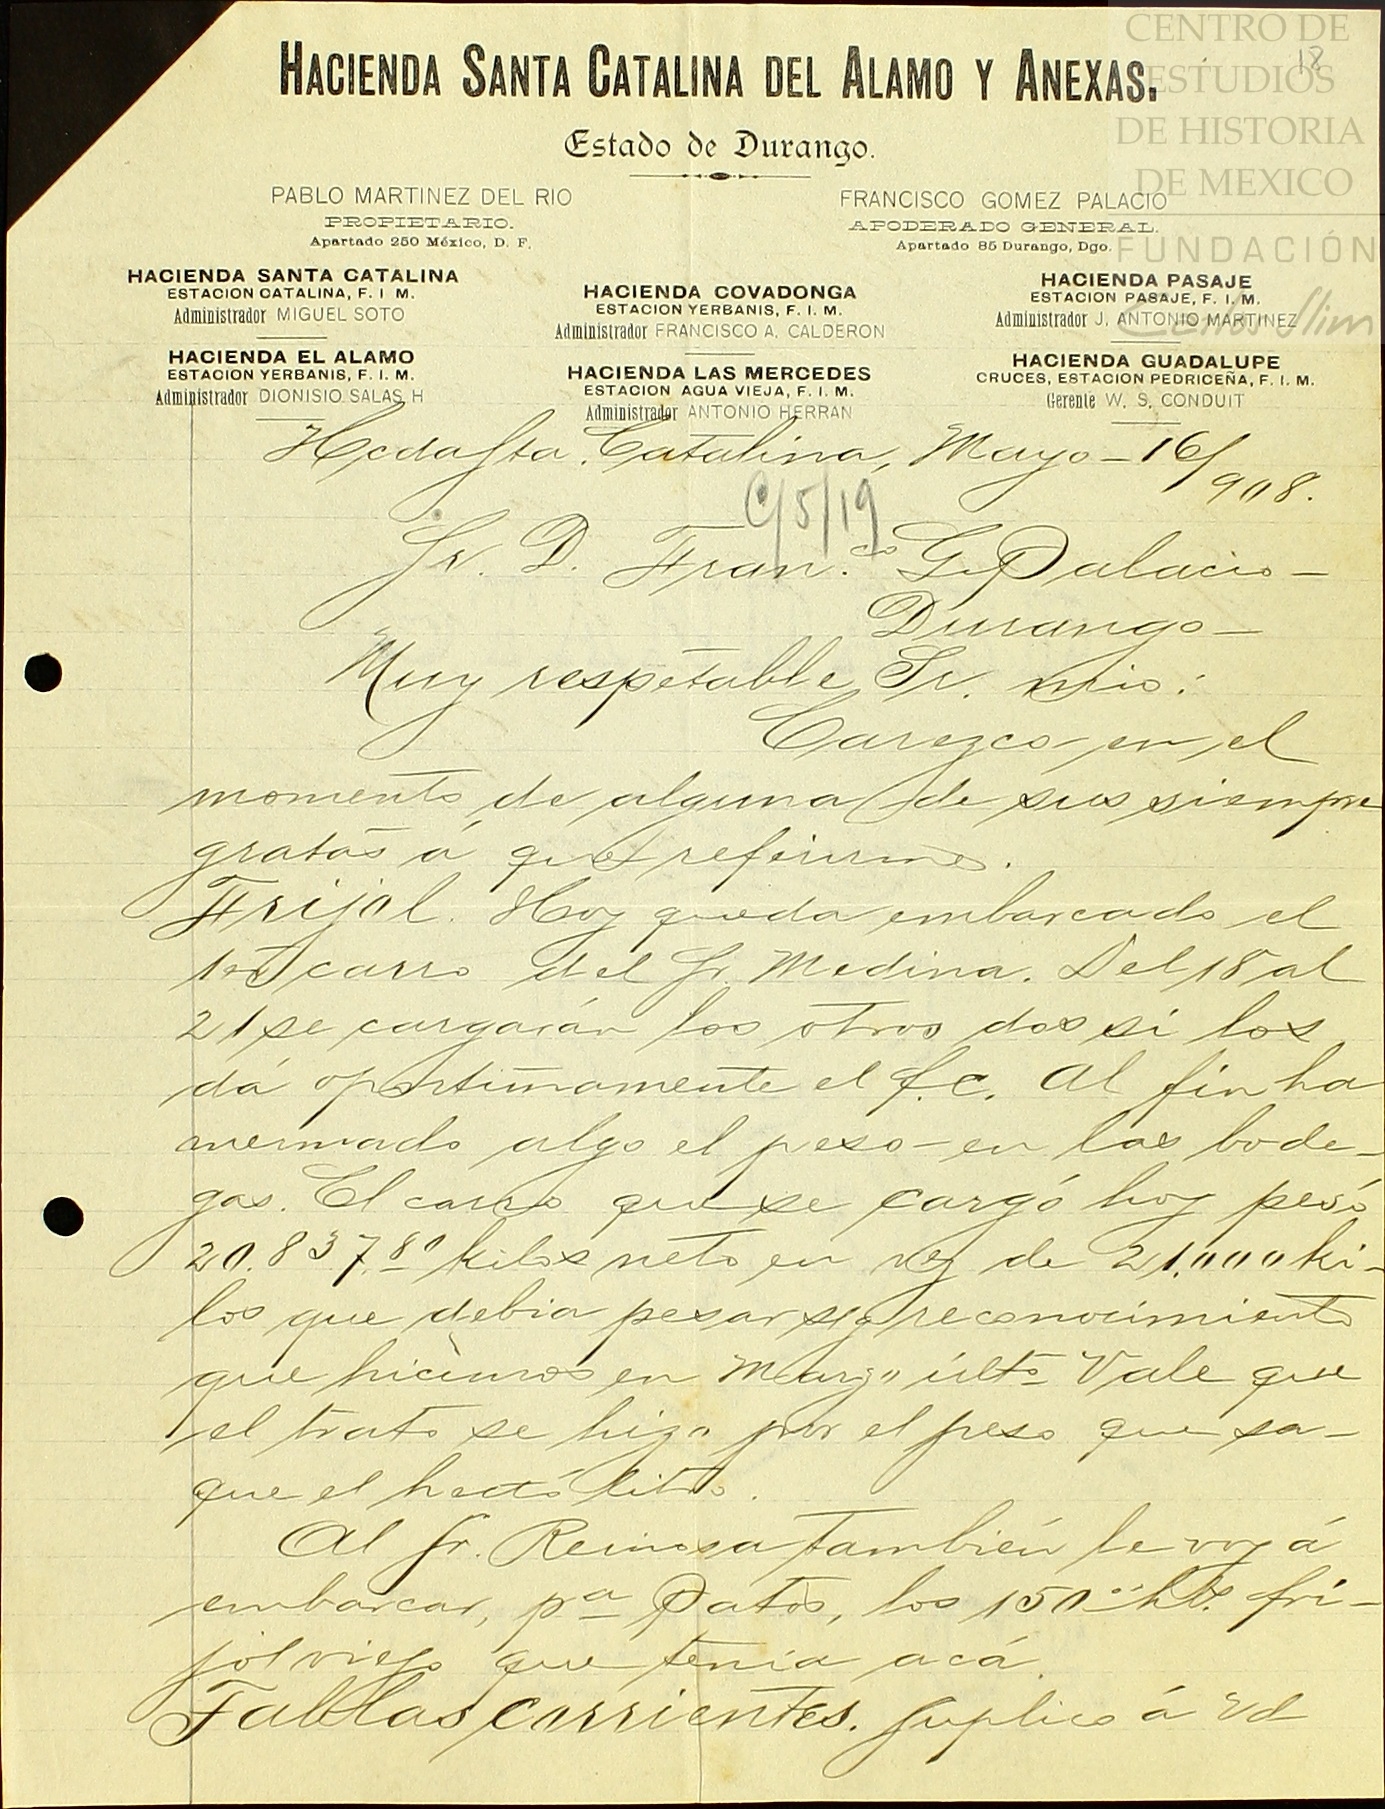 CENTRO DE
ESTUDIOS
DE HISTORIA
DE MEXICO
FUNDACIÓN
Carlos Slim
18
HACIENDA SANTA CATALINA DEL ALAMO Y ANEXAS.
Estado de Durango.
PABLO MARTINEZ DEL RIO
PROPIETARIO.
Apartado 250 México, D. F.
FRANCISCO GOMEZ PALACIO
APODERADO GENERAL.
Apartado 85 Durango, Dgo.
HACIENDA SANTA CATALINA
ESTACION CATALINA, F. I. M.
Administrador MIGUEL SOTO
HACIENDA COVADONGA
ESTACION YERBANIS, F. I. M.
Administrador FRANCISCO A. CALDERON
HACIENDA PASAJE
ESTACION PASAJE, F. I. M.
Administrador J. ANTONIO MARTINEZ
HACIENDA EL ALAMO
ESTACION YERBANIS, F. I. M.
Administrador DIONISIO SALAS H
HACIENDA LAS MERCEDES
ESTACION AGUA VIEJA, F. I. M.
Administrador ANTONIO HERRAN
HACIENDA GUADALUPE
CRUCES, ESTACION PEDRICEÑA, F. I. M.
Gerente W. S. CONDUIT
Hcda Sta. Catalina, Mayo-16/908.
C/5/19
Sr. D. Fran.co G. Palacio-
Durango-
Muy respetable Sr. mio:
Carezco en el
momento de alguna de sus siempre
gratas á que referirme.
Frijol. Hoy queda embarcado el
1er carro del Sr. Medina. Del 18 al
21 se cargarán los otros dos si los
dá oportunamente el f.c. Al fin ha
mermado algo el peso en las bode-
gas. El carro que se cargó hoy pesó
20.837.80 kilos neto en vez de 21.000 ki-
los que debia pesar sg reconocimiento
que hicimos en Marzo últo Vale que
el trato se hizo por el peso que sa-
que el hectólitro.
Al Sr. Reinosa también le voy á
embarcar, pa Patos, los 150 hts. fri-
jol viejo que tenía acá.
Tablas corrientes. Suplico á Vd